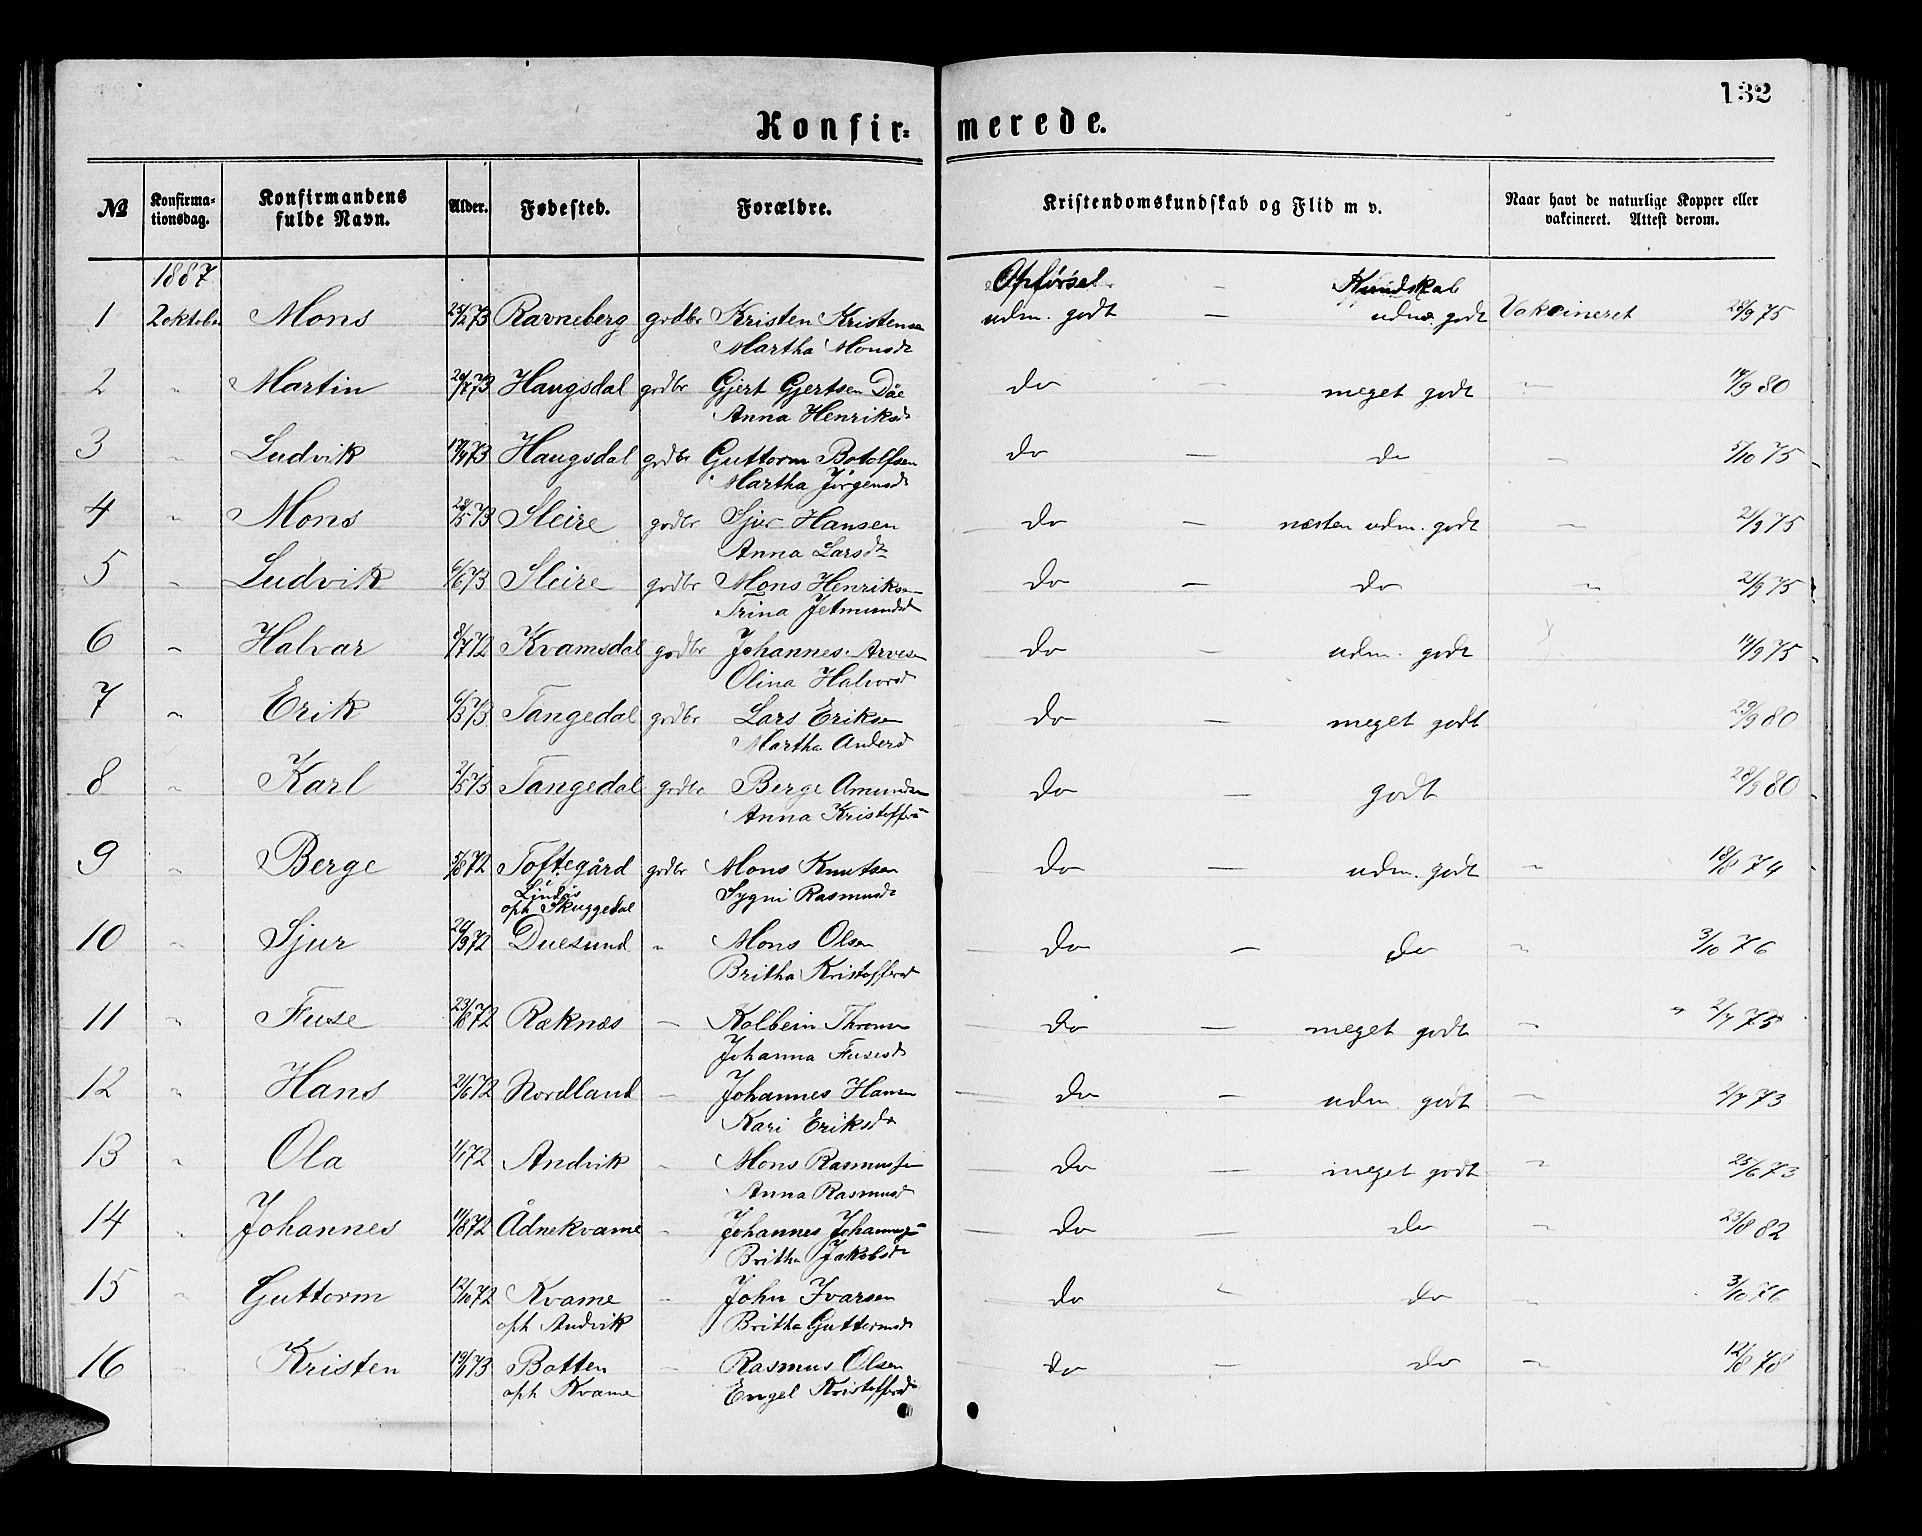 132
Konfir= merede.
№ Konfirma-tionsdag. Konfirmandens fulde Navn. Alder. Fødested. Forældre. Kristendomskundskab og Flid m v. Naar havt de naturlige Kopper eller vakcineret. Attest derom.
1887 Opførsel - Kundskab
1 2 oktober Mons Ravneberg grdbr Kristen Kristensen udm. godt - udm. godt Vakcineret 28/9 75
Martha Monsdt
2 " Martin Haugsdal grdbr Gjert Gjertsen Däe do - meget godt " 14/9 80
Anna Henriksdt
3 " Ludvik Haugsdal grdbr Guttorm Botolfsen do - do " 5/10 75
Martha Jørgensdt
4 " Mons Sleire grdbr Sjur Hansen do - næsten udm. godt " 2/9 75
Anna Larsdt
5 " Ludvik 6/6 73 Sleire grdbr Mons Henriksen do - do " 21/9 75
Trina Jetmundsdt
6 " Halvar 8/7 72 Kvamsdal grdbr Johannes Arvesen do - udm. godt 14/9 75
Olina Halvorsdt
7 " Erik 6/3 73 Tangedal grdbr Lars Eriksen do - meget godt 29/9 80
Martha Andersdt
8 " Karl 2/5 73 Tangedal grdbr Berge Amundsen do - godt 28/9 80
Anna Kristoffersdt
9 " Berge 5/8 72 Toftegård grdbr Mons Knutsen do - udm. godt " 18/8 74
Lindås
oph Skuggedal Sygni Rasmusdt
10 " Sjur 20/9 72 Duesund " Mons Olsen do - do " 3/10 76
Britha Kristoffersdt
11 " Fuse 23/8 72 Ræknæs - Kolbein Thronsen do - meget godt " " 2/7 75
Johanna Fusesdt
12 " Hans 2/6 72 Nordland - Johannes Hansen do - udm. godt " 2/7 73
Kari Eriksdt
13 " Ola 1/1 72 Andvik - Mons Rasmussen do - meget godt " 25/6 73
Anna Rasmusdt
14 " Johannes 11/8 72 Ådnekvame - Johannes Johannes do - do " 23/8 82
Britha Jakobsdt
15 " Guttorm 12/10 72 Kvame - John Ivarsen do - do " 3/10 76
oph Andvik Britha Guttormsdt
16 " Kristen Botten - Rasmus Olsen do - do " 12/8 78
oph Kvame Engel Kristoffersdt